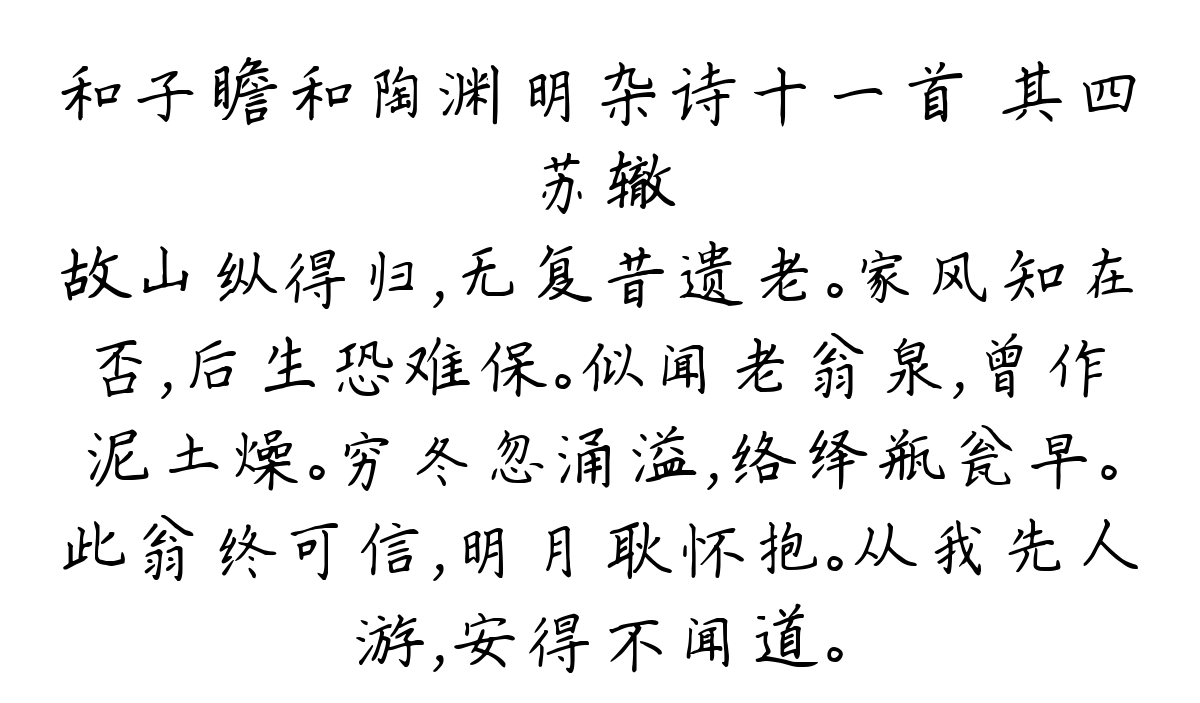 和子瞻和陶渊明杂诗十一首 其四
苏辙
故山纵得归,无复昔遗老。家风知在
否,后生恐难保。似闻老翁泉,曾作
泥土燥。穷冬忽涌溢,络绎瓶瓮早。
此翁终可信,明月耿怀抱。从我先人
游,安得不闻道。